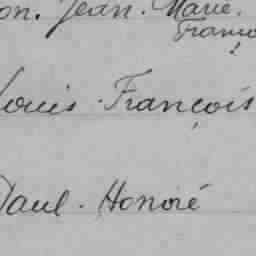 on. Jean. Marie.
Franço
Louis. François
Paul. Honoré